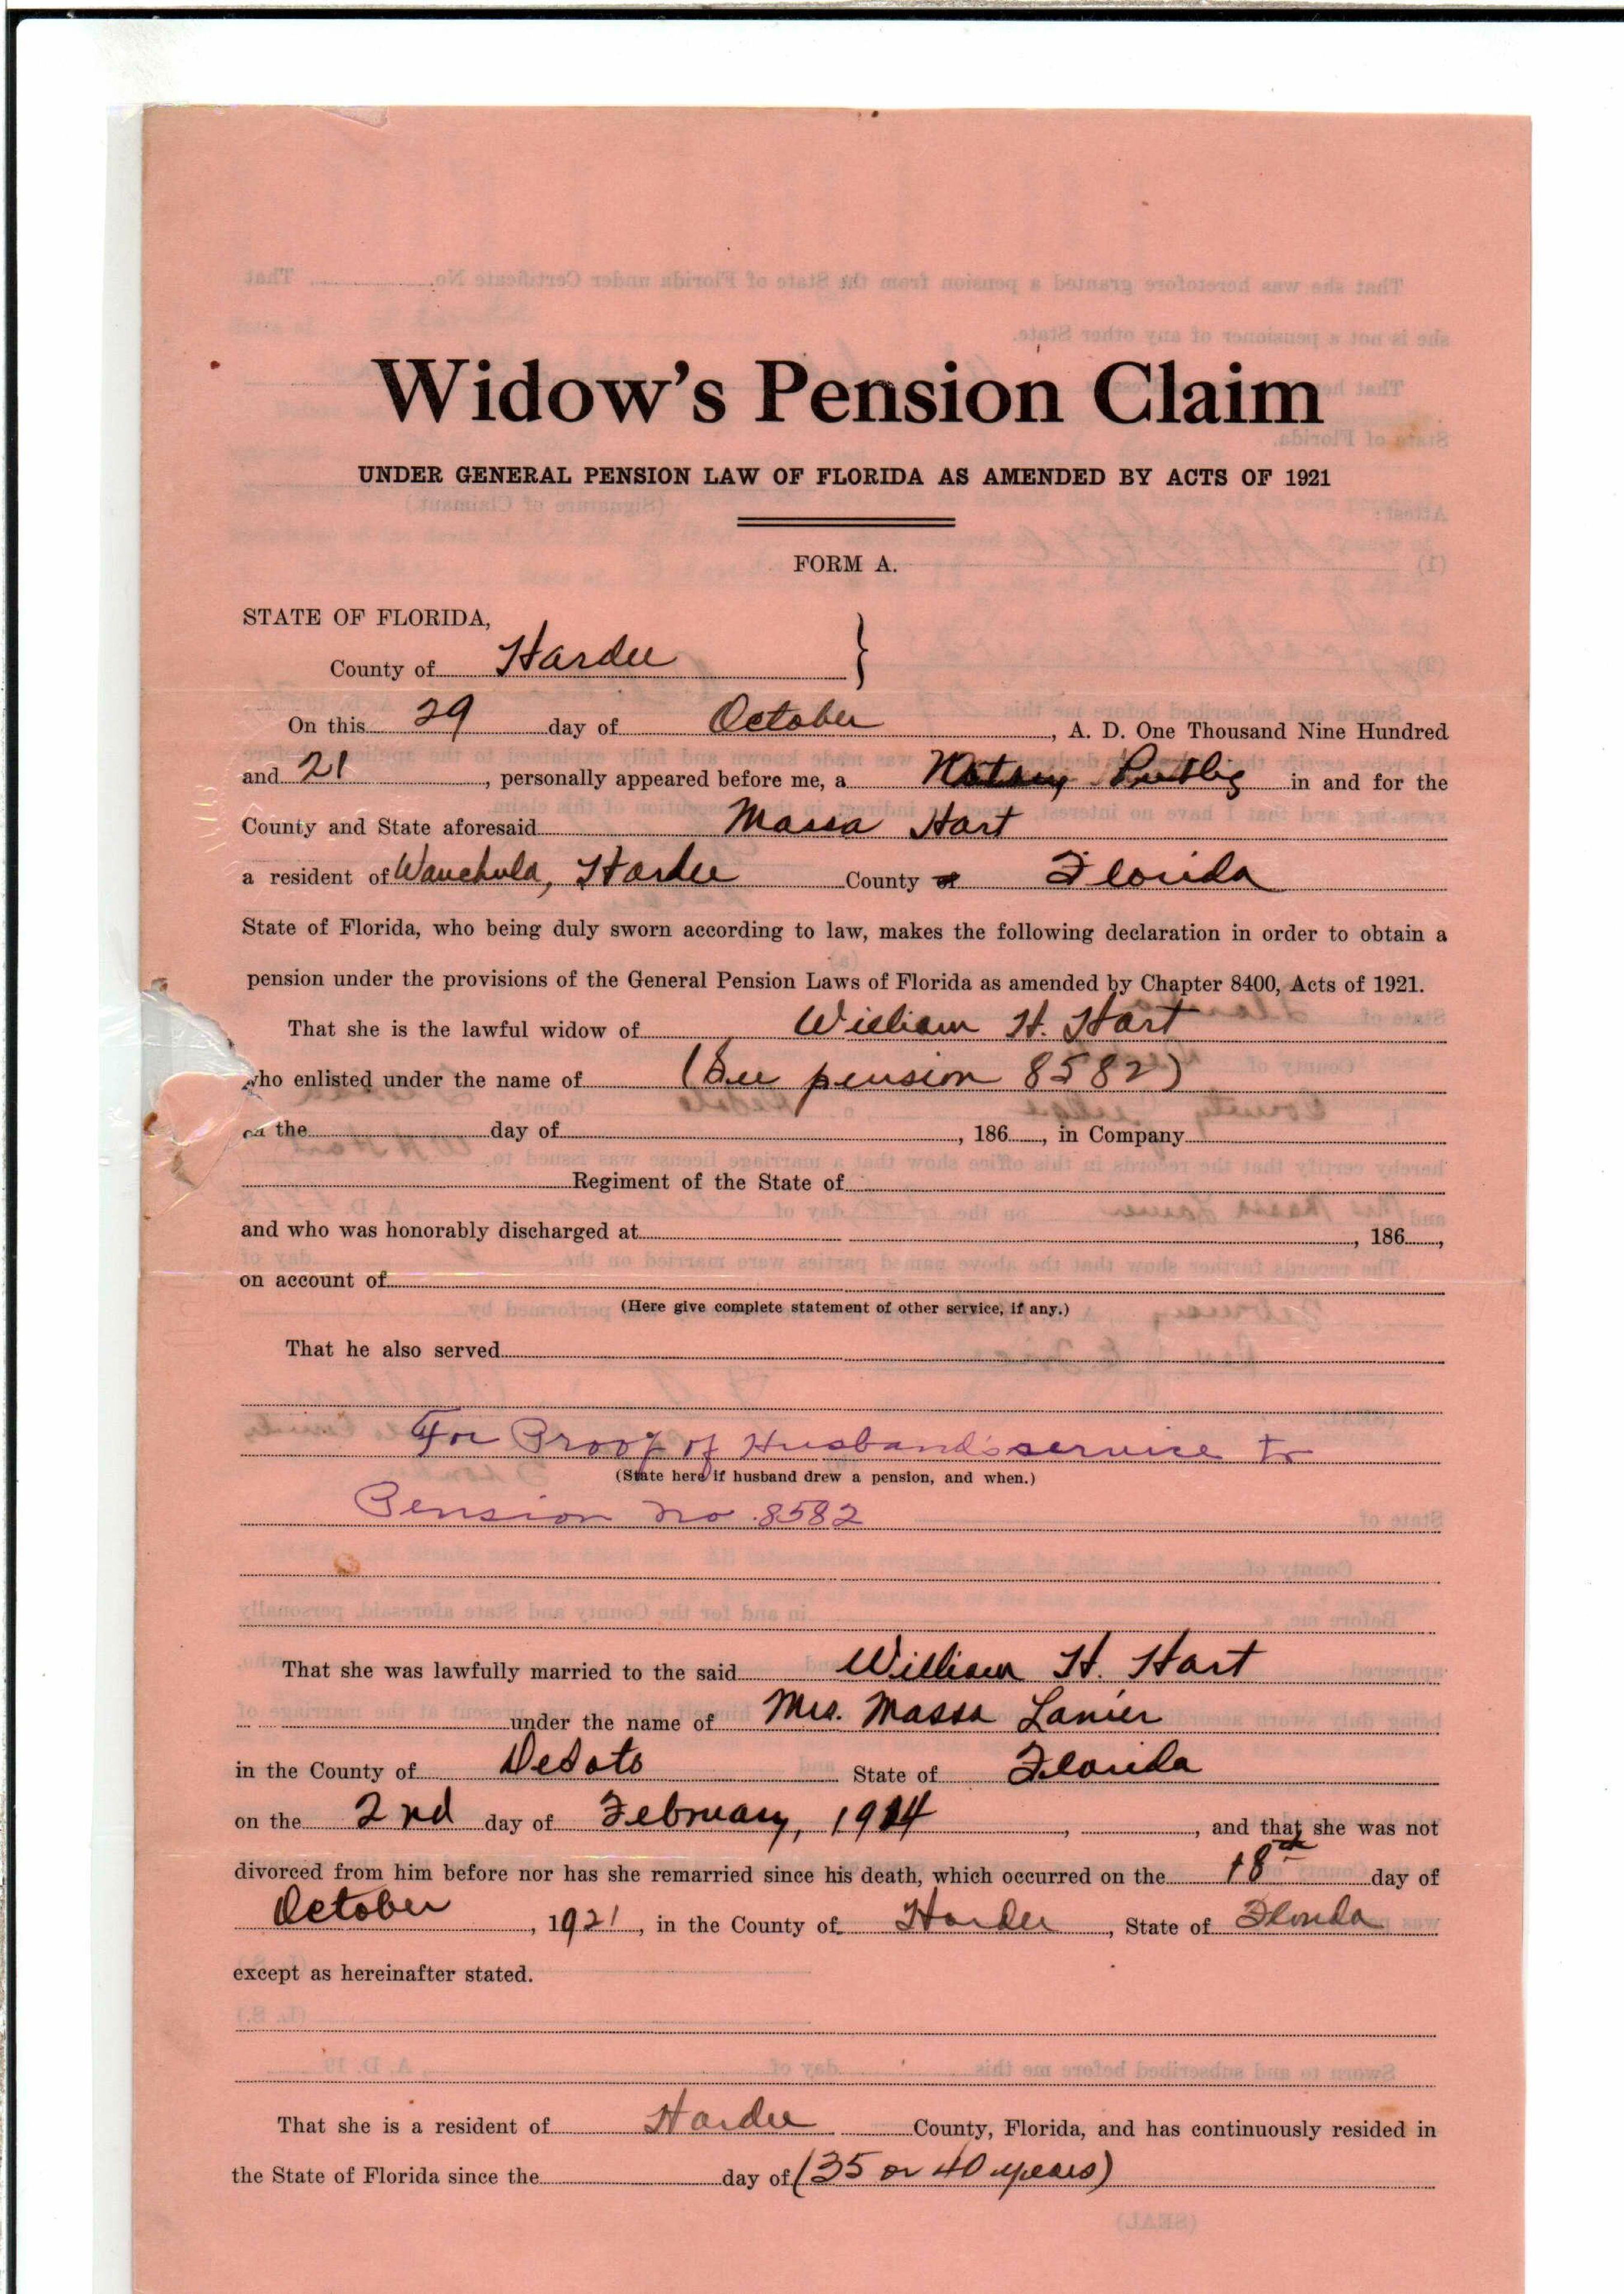 Widow's Pension Claim
UNDER GENERAL PENSION LAW OF FLORIDA AS AMENDED BY ACTS OF 1921
FORM A.
STATE OF FLORIDA,
County of Hardee }
On this 29 day of October, A. D. One Thousand Nine Hundred
and 21, personally appeared before me, a Notary Public in and for the
County and State aforesaid Massa Hart
a resident of Wauchula, Hardee County of Florida
State of Florida, who being duly sworn according to law, makes the following declaration in order to obtain a
pension under the provisions of the General Pension Laws of Florida as amended by Chapter 8400, Acts of 1921.
That she is the lawful widow of William H. Hart
who enlisted under the name of (See pension 8582)
on the day of , 186 , in Company
Regiment of the State of
and who was honorably discharged at , 186 ,
on account of
(Here give complete statement of other service, if any.)
That he also served
For Proof of Husband's service to
(State here if husband drew a pension, and when.)
Pension no. 8582
That she was lawfully married to the said William H. Hart
under the name of Mrs. Massa Lanier
in the County of DeSoto State of Florida
on the 2nd day of February, 1914 , , and that she was not
divorced from him before nor has she remarried since his death, which occurred on the 18th day of
October, 1921, in the County of Hardee, State of Florida
except as hereinafter stated.
That she is a resident of Hardee County, Florida, and has continuously resided in
the State of Florida since the day of (35 or 40 years)